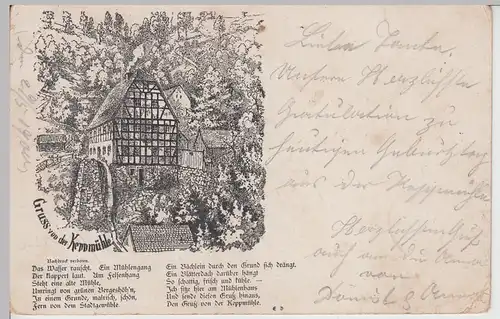 Gruss von der Keppmühle
Nachdruck verboten.
Das Wasser rauscht. Ein Mühlengang
Der klappert laut. Am Felsenhang
Steht eine alte Mühle,
Umringt von grünen Bergeshöh'n,
In einem Grunde, malrisch, schön,
Fern von dem Stadtgewühle.
Ein Bächlein durch den Grund sich drängt.
Ein Blätterdach darüber hängt
So schattig, frisch und kühle. —
Ich sitze hier am Mühlenhaus
Und sende diesen Gruß hinaus,
Den Gruß von der Keppmühle.
Liebe Tante.
Unsere Herzlichste
Gratulation zu
heutigen Geburtstag
aus der Keppmühle
Herzlichsten Gruß
auch an
von